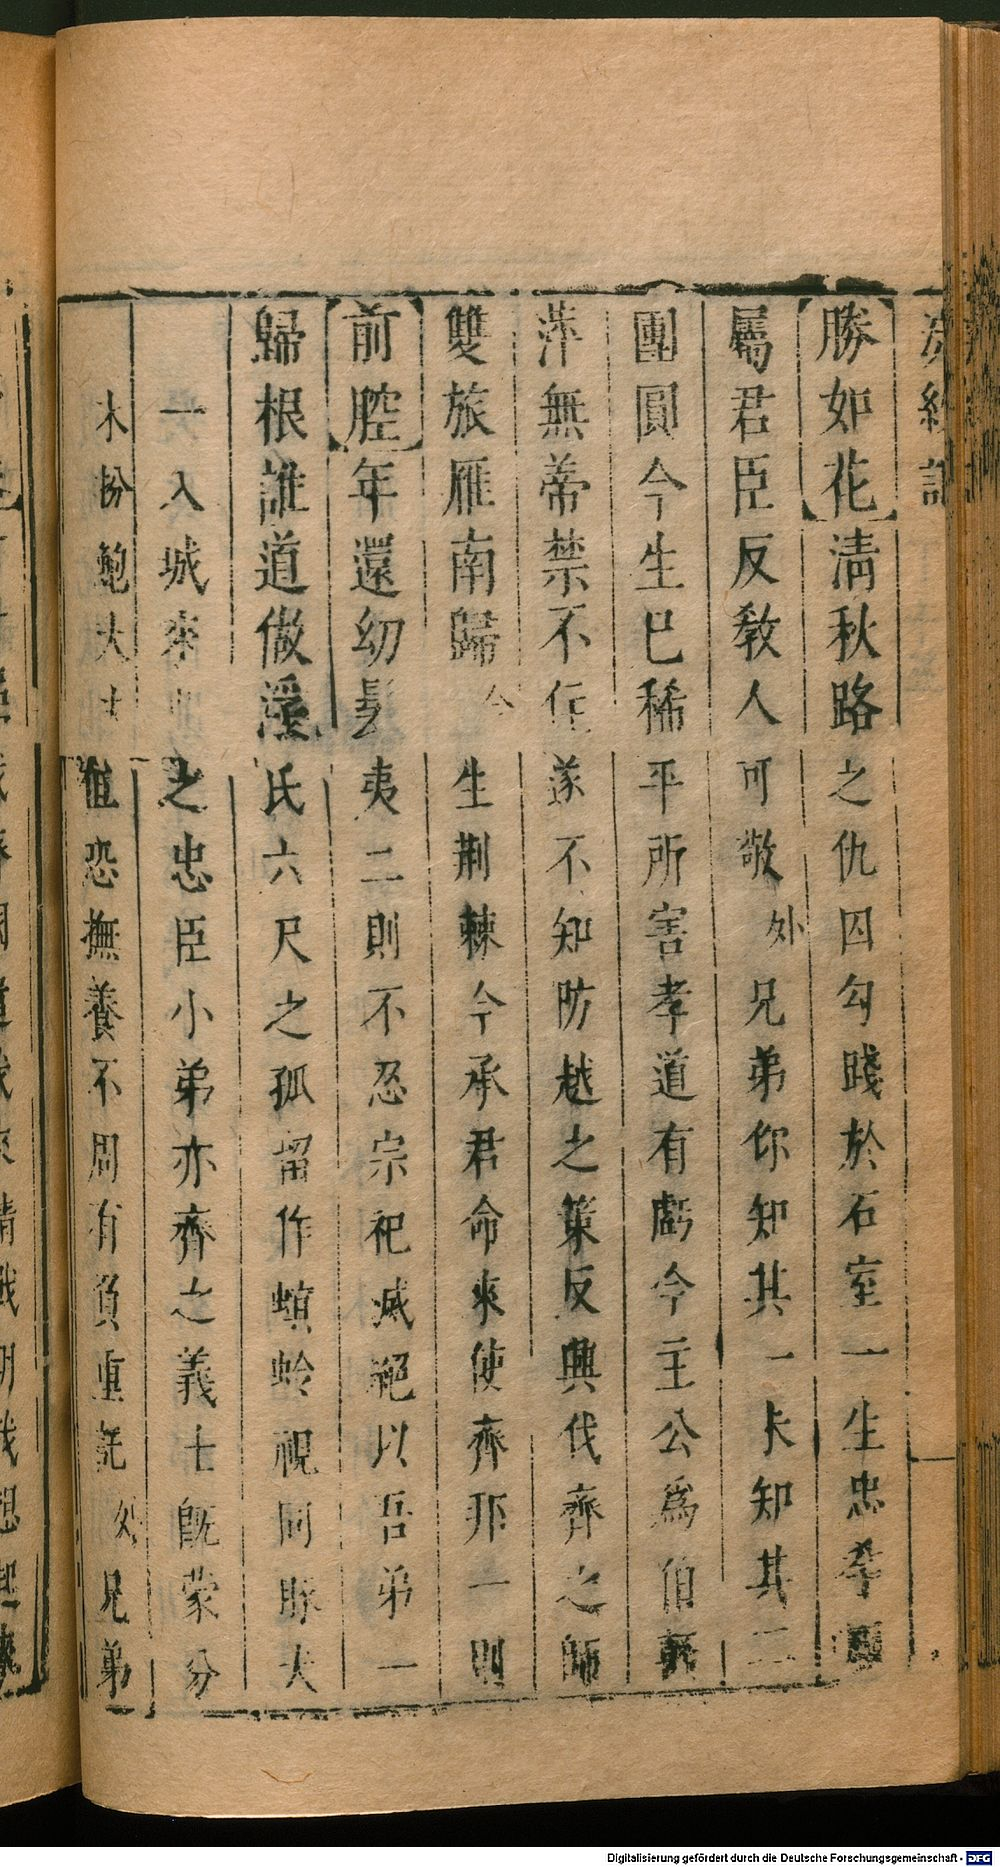 【勝如花】清秋路
屬君臣反教人
團圓今生已稀
萍無蒂禁不住
雙旅雁南歸
【前腔】年還幼髮
歸根誰道做
一入城來
末扮鮑大
之仇囚勾踐於石室一生忠孝
可敬 外 兄弟你知其一未知其二
平所害孝道有虧今主公爲伯嚭
遂不知防越之策反興伐齊之師
生荆棘今承君命來使齊邦一則
夷二則不忍宗祀滅絕以吾弟一
氏六尺之孤留作螟蛉視同豚犬
之忠臣小弟亦齊之義士既蒙分
值恐撫養不周有負重託 外 兄弟
Digitalisierung gefördert durch die Deutsche Forschungsgemeinschaft - DFG